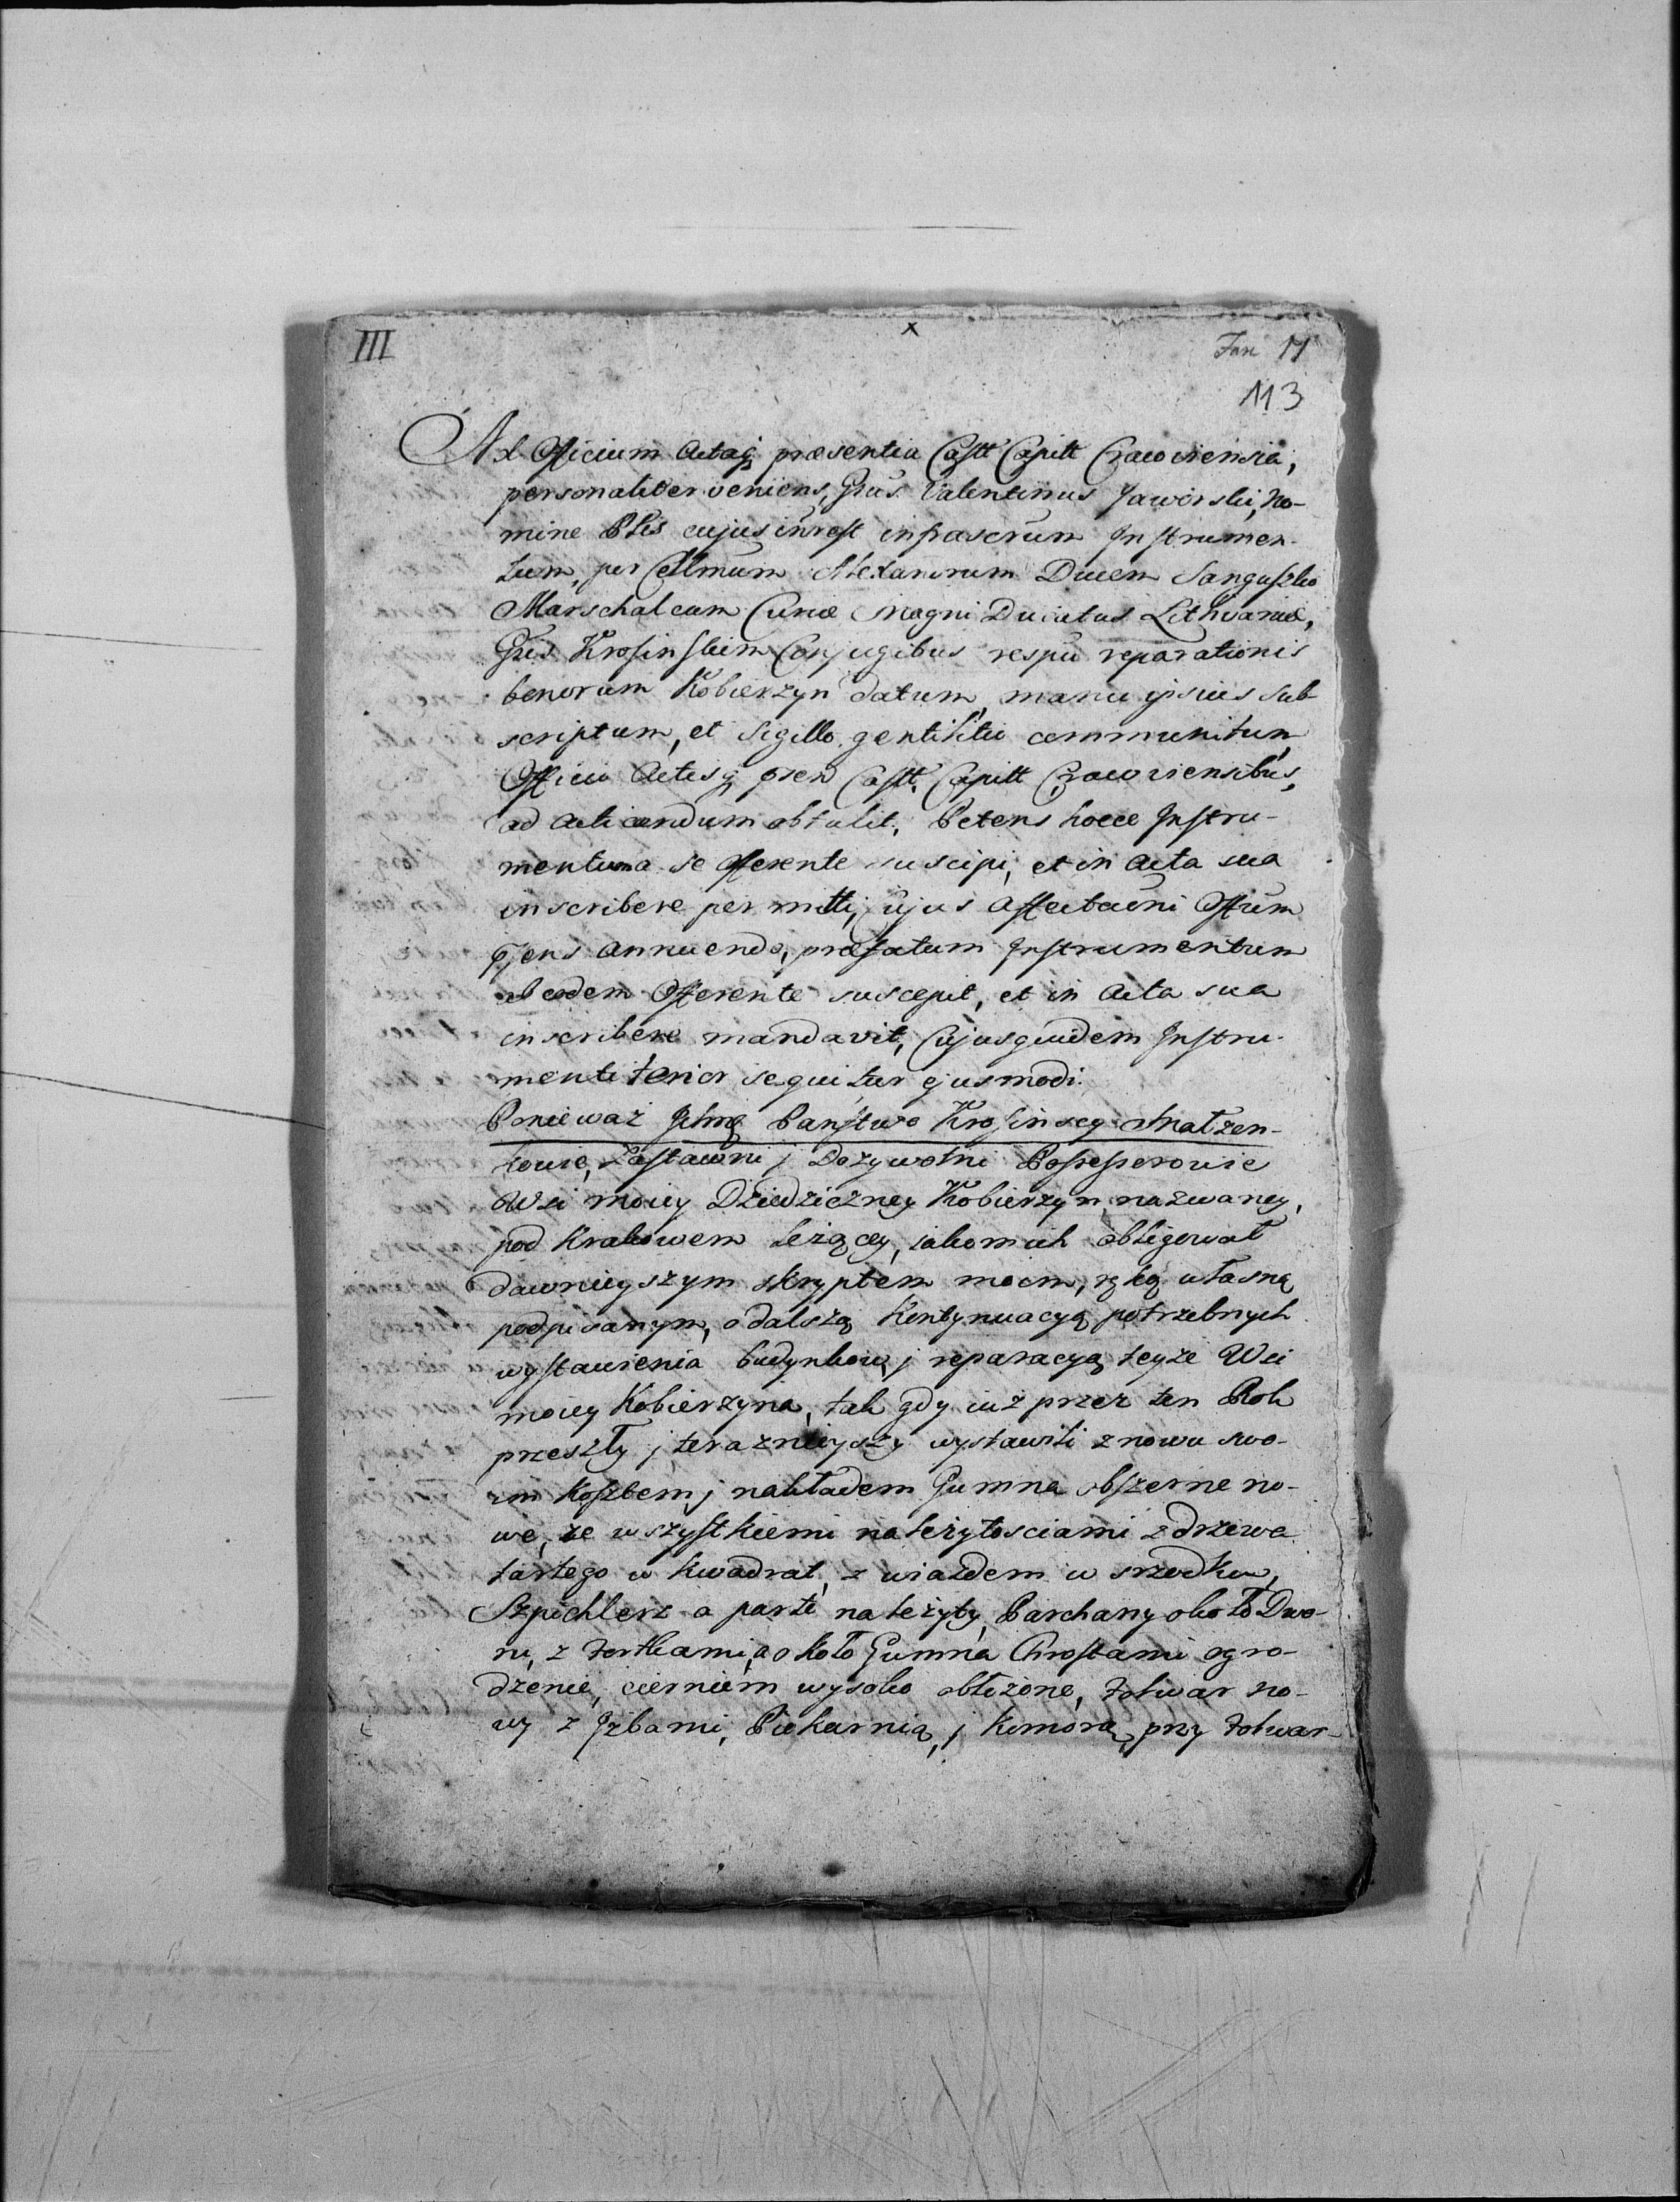 III
x
Fan 17
113
Ad Officium Actaq; præsentia Castt Capitt Cracoviensia,
personaliter veniens, Grūs Valentinus Jaworski, No-
mine PLis cujus inrest infrascrūm Instrumen-
tum, per Cellmum Alexandrum Ducem Sanguszko
Marschalcum Curiæ Magni Ducatus Lithvaniæ,
Gūis Krosinskim Conjugibus respū reparationis
bonorum Kobierzyn datum, manu ipsius sub
scriptum, et Sigillo gentilitio communitum,
Officio Actisq; præn Castt. Capitt Cracoviensibus,
ad acticandum obtulit, Petens hocce Instru-
mentum a se Offerente suscipi, et in Acta sua
inscribere permitti, Cujus affectaōni Offūm
præns annuendo, præfatum Instrumentum
ab eodem Offerente suscepit, et in Acta sua
inscribere mandavit, Cujusquidem Instru-
menti tenor sequitur ejusmodi.
Ponieważ Jchmę Państwo Krosinscy Małżen-
kowie, Zastawni j Dożywotni Possessorowie
Wsi moiey Dziedziczney Kobierzyn nazwaney,
pod Krakowem leżącey, iakom ich obligował
dawnieyszym skryptem moim, ręką własną
podpisanym, o dalszą Kontynuacyą potrzebnych
wystawienia budynkow, j reparacyą teyże Wsi
moiey Kobierzyna, tak gdy iuż przez ten Rok
przeszły j teraznieyszy wystawili znowu swo-
im Kosztem, j nakładem Gumna obszerne no-
we, ze wszystkiemi należytosciami z drzewa
tartego w kwadrat, z wiazdem w srzodku,
Szpichlerz a parte należyty, Parchany około Dwo-
ru, z fortkami, a około Gumna Chrostami ogro-
dzenie, cierniem wysoko obłożone, folwar no-
wy z Jzbami, Piekarnią, j komorą, przy folwar-